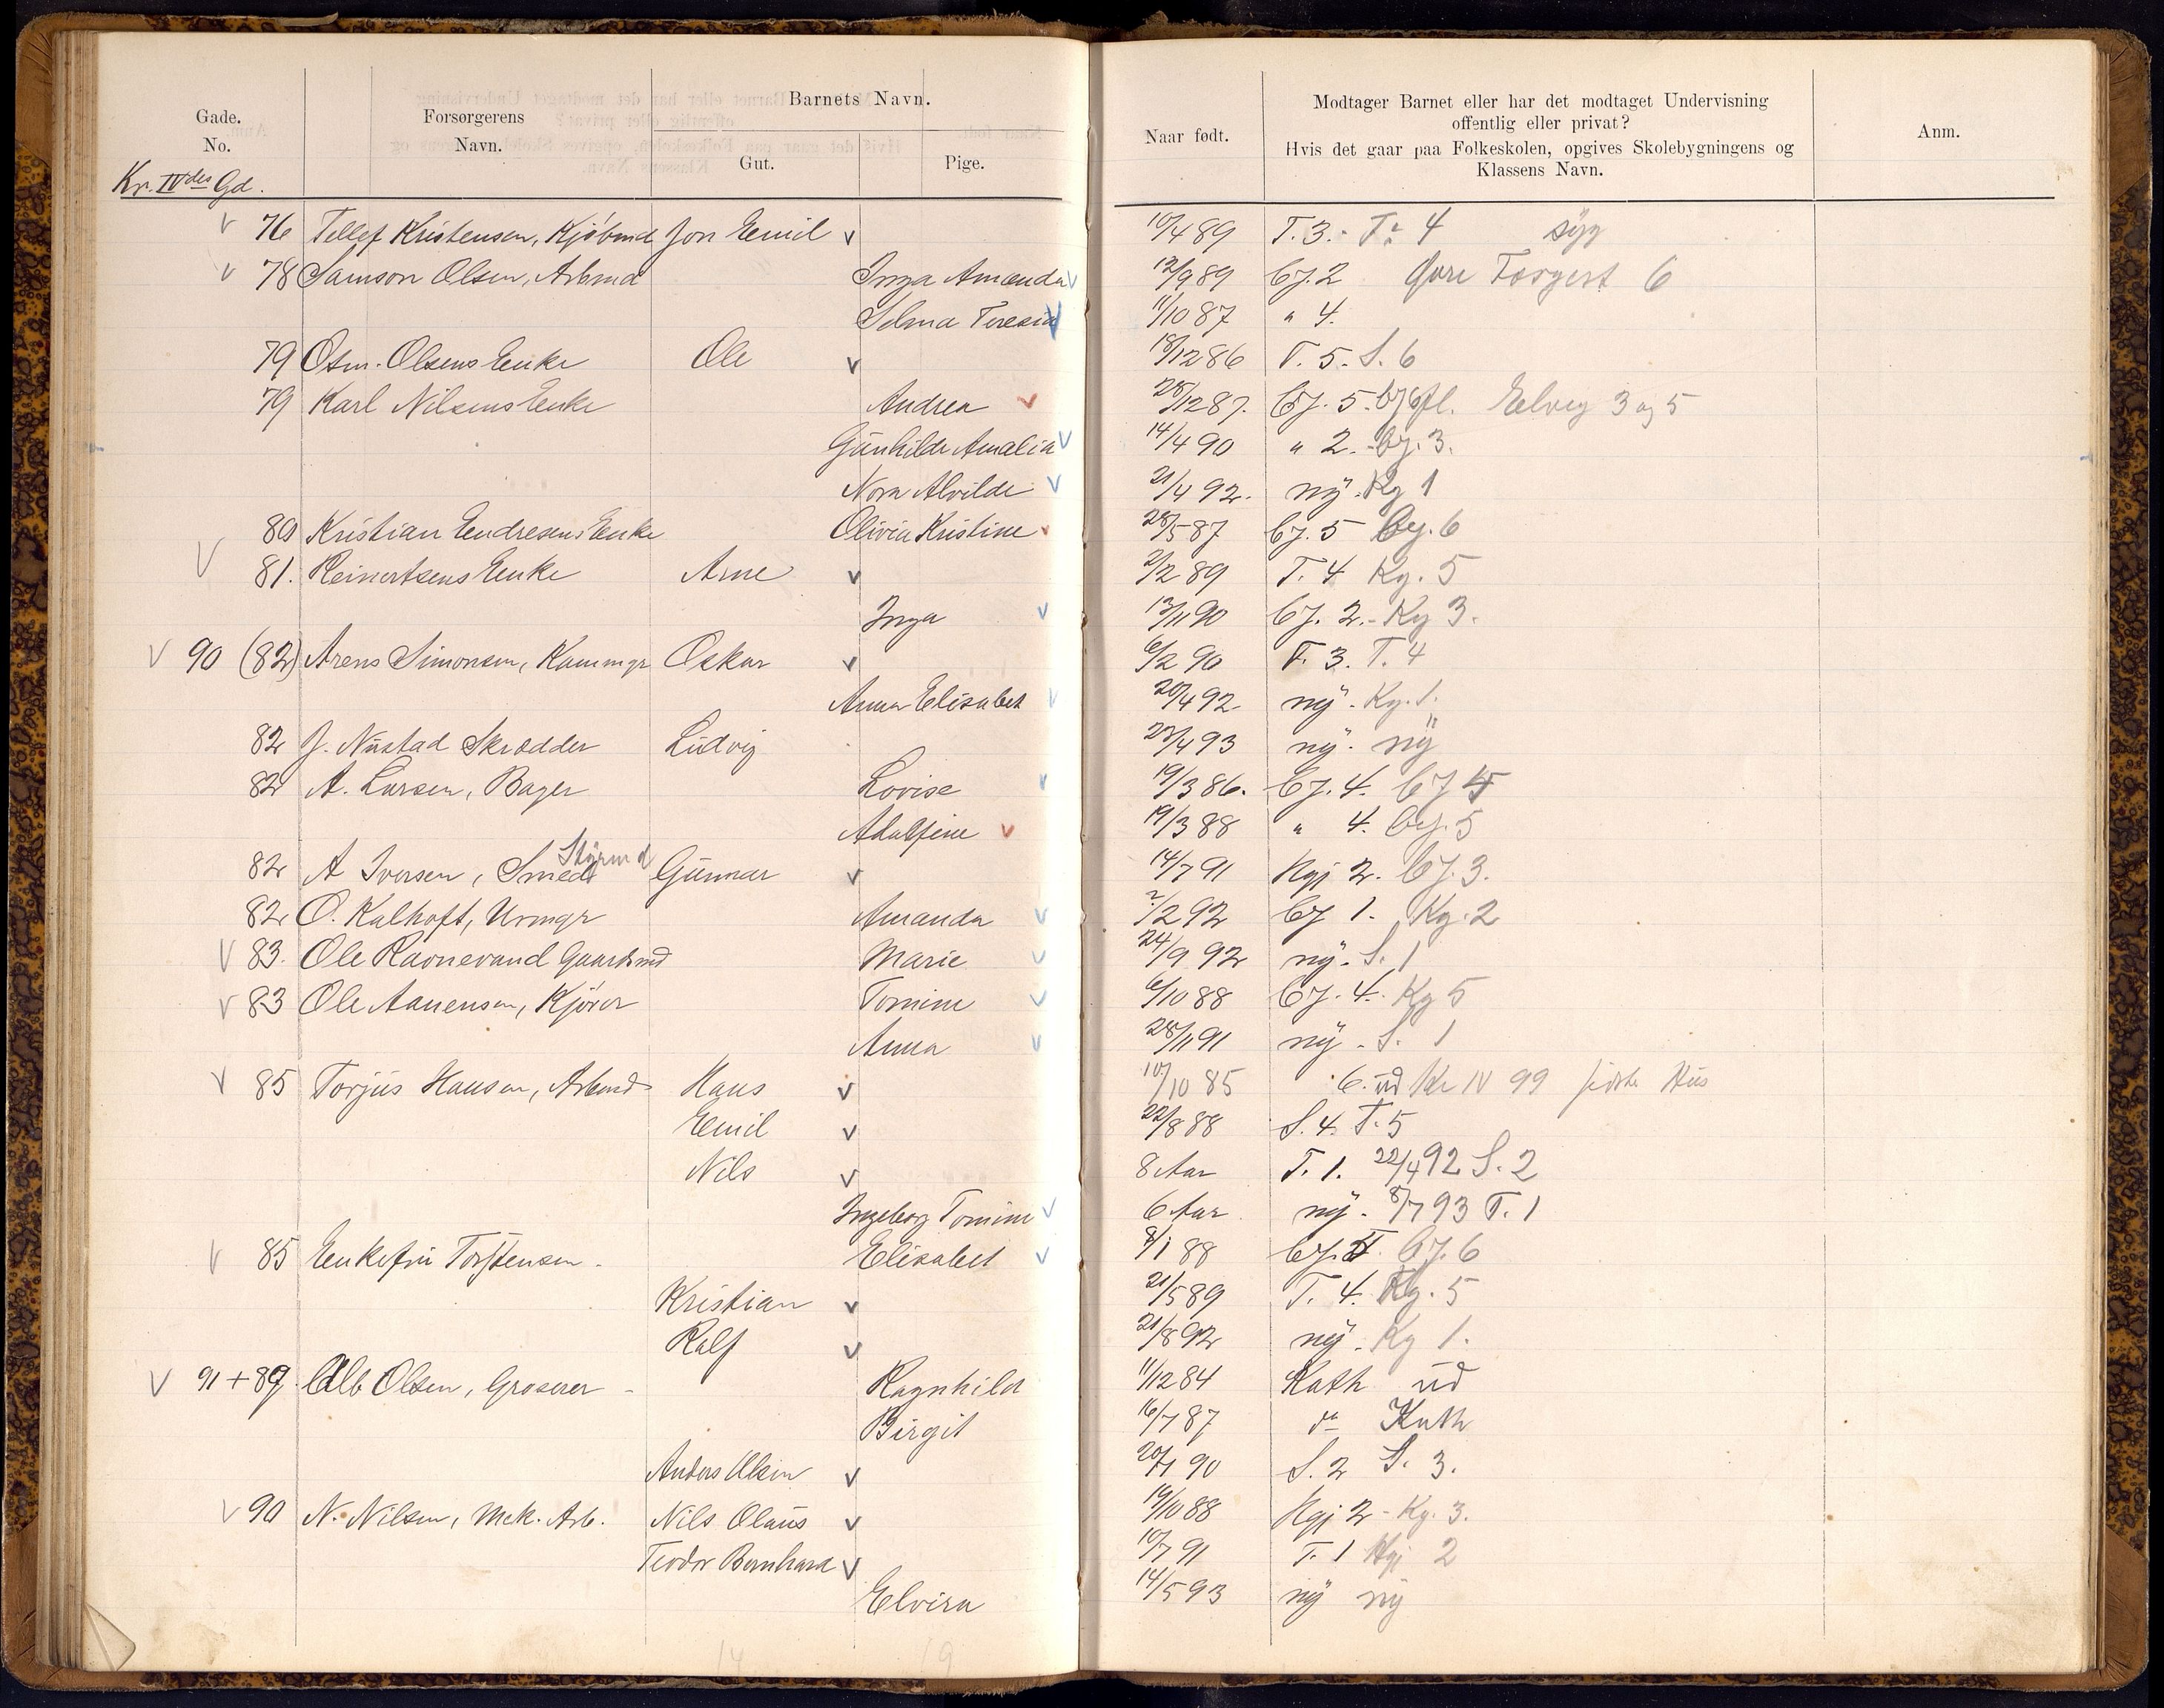 Gade.
No.
Forsørgerens
Navn.
Barnets Navn.
Gut.
Pige.
Naar født.
Modtager Barnet eller har det modtaget Undervisning
offentlig eller privat?
Hvis det gaar paa Folkeskolen, opgives Skolebygningens og
Klassens Navn.
Anm.
Kr. IVdes Gd.
76 Tellef Kristensen, Kjöbmd Jon Emil 10/4 89 T. 3. T. 4 syg
78 Samson Olsen, Arbmd Inga Amanda 12/9 89 Cj. 2 6
Selma Teresia 11/10 87 " 4.
79 Osm. Olsens Enke Ole 18/12 86 T. 5. S. 6
79 Karl Nilsens Enke Andrea 28/12 87. Cj. 5. Elveg 3 og 5
Gunhilde Amalia 14/4 90 " 2. - Cj. 3.
Nora Alvilde 21/4 92. ny. Kg 1
80 Kristian Endresens Enke Olivia Kristine 28/5 87 Cj. 5 Cj. 6
81. Reinertsens Enke Arne 2/2 89 T. 4 Kg. 5
Inga 13/11 90 Cj. 2. - Kg 3.
90 (82) Arens Simonsen, Kammgr Oskar 6/2 90 T. 3. T. 4
Anna Elisabet 20/4 92 ny. Kg. 1.
82 J. Nustad Skrædder Ludvig 23/4 93 ny. ny
82 A. Larsen, Bager Lovise 19/3 86. Cj. 4. Cj 5
Adolfine 19/3 88 " 4. Cj. 5
82 A Iversen, Smed Styrmd Gunnar 14/7 91 Kgj 2. Cj. 3.
82 O. Kalhoft, Urmgr Amanda 2/2 92 Cj 1. Kg. 2
83. Ole Ravnevand Gaardmd Marie 24/9 92 ny. S. 1
83 Ole Aanensen, Kjörer Tomine 6/10 88 Cj. 4. Kg 5
Anna 28/11 91 ny. S. 1
85 Torjus Hansen, Arbmd Hans 10/10 85 6. ud Kr IV 99 sidste Hus
Emil 22/8 88 S. 4. T. 5
Nils 8 Aar T. 1. 22/4 92 S. 2
Ingeborg Tomine 6 Aar ny. 8/7 93 T. 1
85 Enkefru Torstensen. Elisabet 8/1 88 Cj. 5. Cj. 6
Kristian 21/5 89 T. 4. Kg. 5
Ralf 21/8 92 ny. Kg 1.
91 + 89. Alb Olsen, Groserer Ragnhild 11/12 84 Kath ud
Birgit 16/7 87 do Kath
Anders Olsen 20/1 90 S. 2 S. 3.
90 N. Nilsen, Mek. Arb. Nils Olaus 19/10 88 Kgj 2 - Kg. 3.
Teodor Bernhard 10/7 91 T. 1 Kgj 2
Elvira 14/5 93 ny ny
14 19